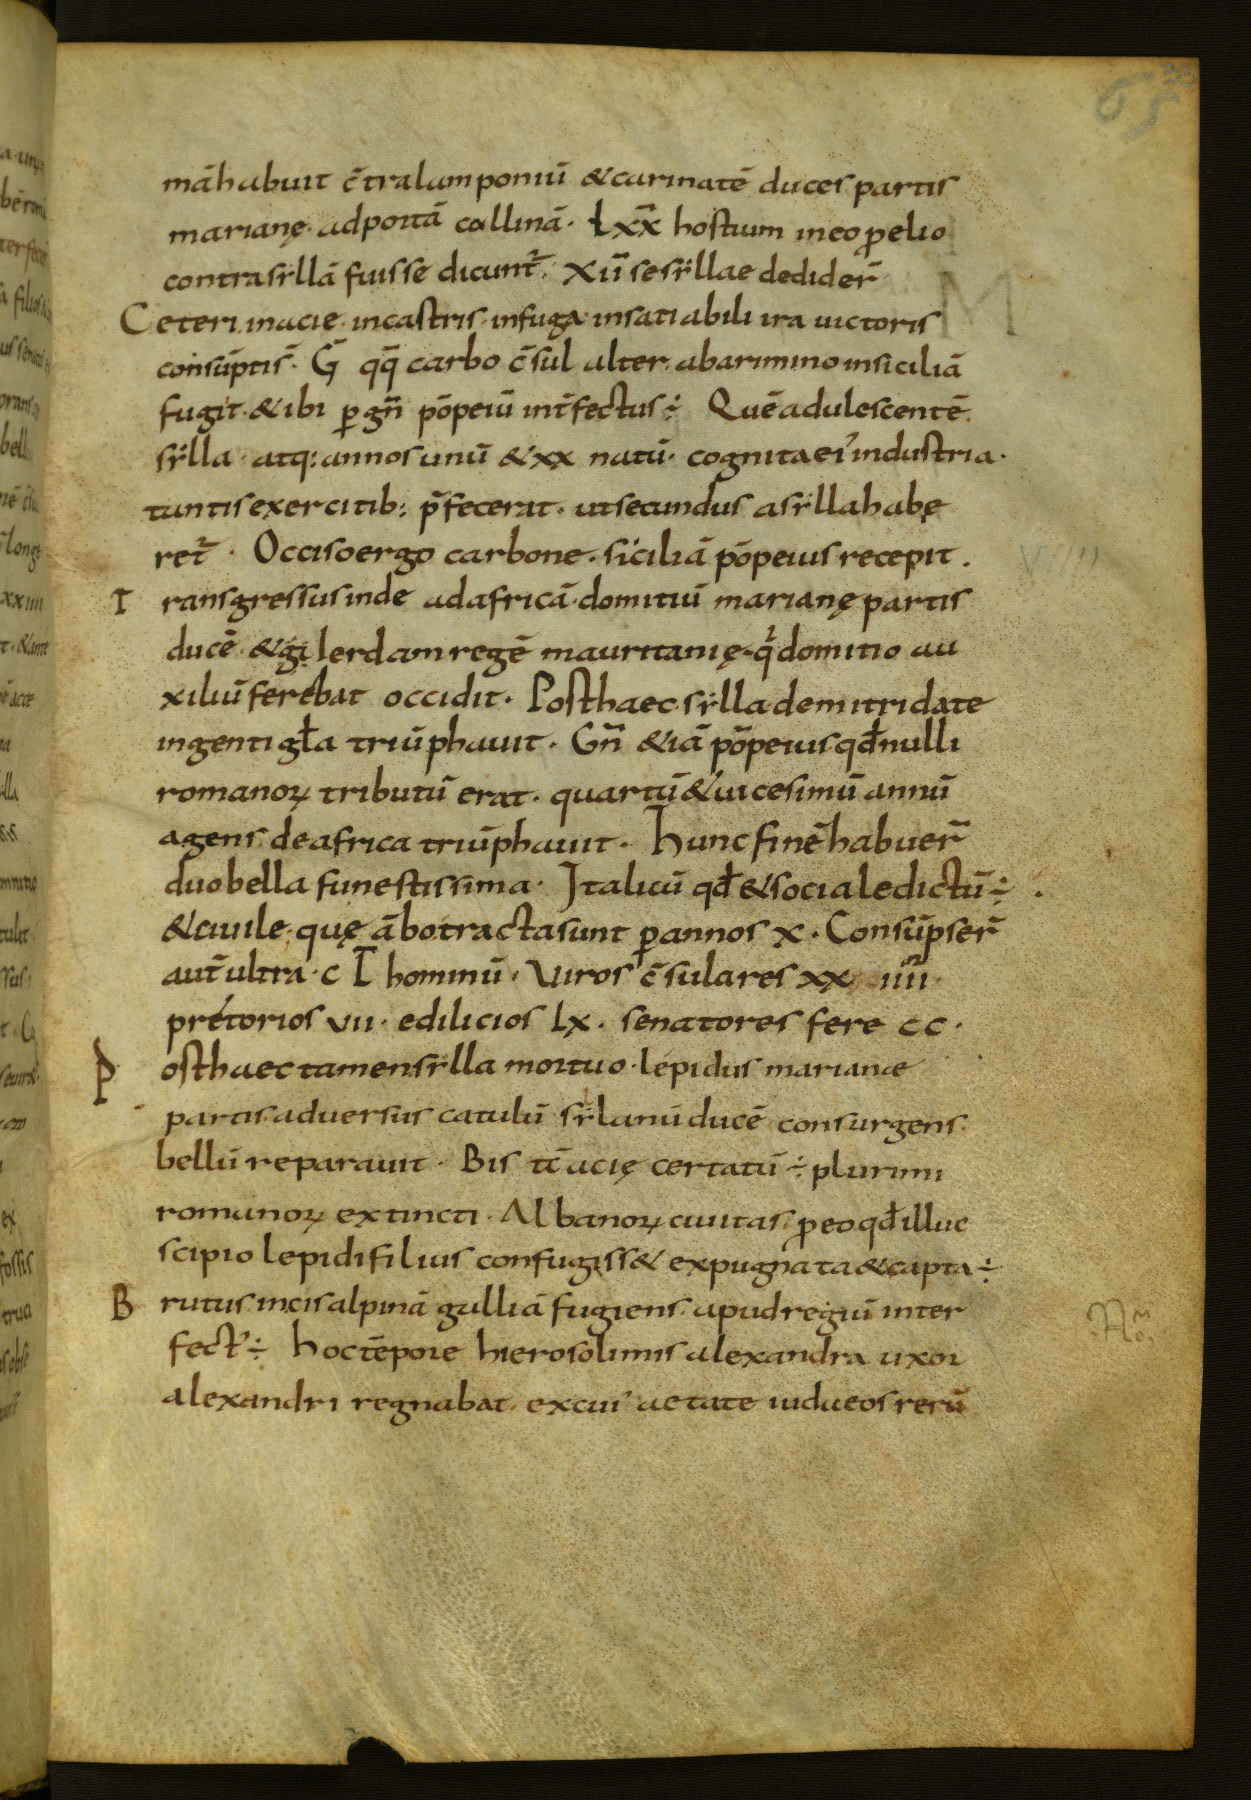 65
mā habuit c̄tra lamponiū & carinatē duces partis
marianę· ad portā collinā· Lxx̄ hostium in eo prelio
contra sẏllā fuisse dicunt̄· Xii̅ se sẏllae dedider̄
Ceteri in acie· in castris· in fuga· insatiabili ira uictoris
consūptis̄· Ḡ qq̄ carbo c̄sul alter· ab arimino in siciliā
fugit· & ibi ꝑ gn̄ pōpeiū int̄fectus÷ Quē adulescentē
sẏlla· atq: annos unū & xx natū· cognita ei' industria·
tantis exercitib: p̄fecerat· ut secundus a sẏlla habe
ret̄· Occiso ergo carbone· siciliā pōpeius recepit·
Transgressus inde ad africā· domitiū marianę partis
ducē· & gi lerdam regē mauritanię· q̇ domitio au
xiliū ferebat occidit· Post haec sẏlla de mitridate
ingenti gła triūphauit· Gn̄ & iā pōpeius qđ nulli
romanoꝝ tributū erat· quartū & uicesimū annū
agens de africa triūphauit· Hunc finē habuer̄
duo bella funestissima· Italicū qđ & sociale dictū÷
& ciuile· quę ābo tracta sunt ꝑ annos x· Consūpser̄
aut̄ ultra· c L̄ hominū· Viros c̄sulares xx iiii·
prétorios vii· edilicios Lx· senatores fere cc·
Post haec tamen sẏlla mortuo· lepidus marianae
partis aduersus catulū sẏlanū ducē consurgens·
bellū reparauit· Bis tc̄ acię certatū÷ plurimi
romanoꝝ extincti· Albanoꝝ ciuitas· ꝓ eo qđ illuc
scipio lepidi filius confugiss& expugnata & capta÷
Brutus in cisalpinā galliā fugiens· apud regiū inter
fect'÷ Hoc tēpore hierosolimis alexandra uxor
alexandri regnabat· ex cui' aetate iudaeos rerū